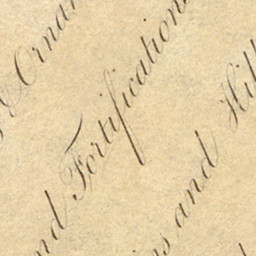 & Orna
nd Fortification
s and Hil